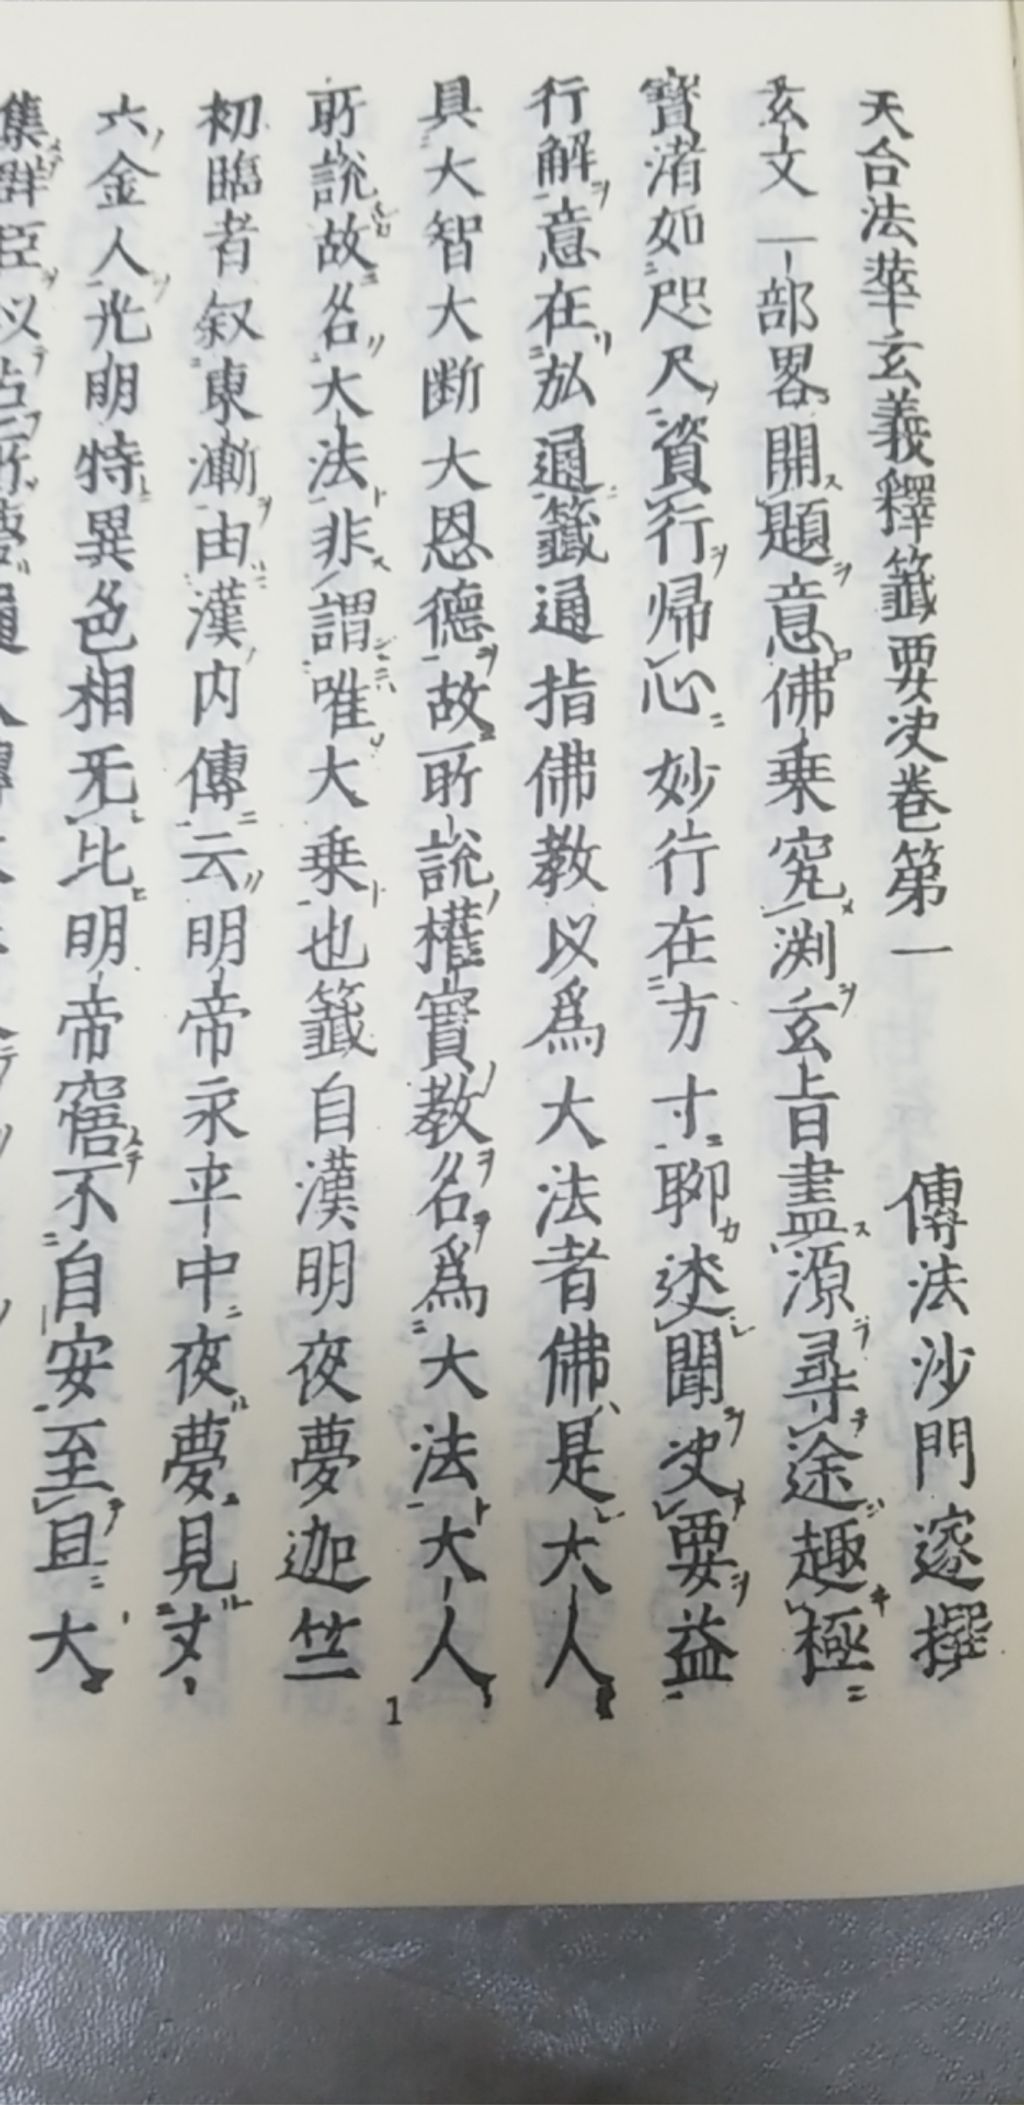 天台法華玄義釋籤要决卷第一
傳法沙門邃撰
玄文一部畧開題意佛乗究渕玄旨盡源尋途趣極
寶渚如咫尺資行帰心妙行在方寸聊述聞决要益
行解意在弘通籤通指佛教以爲大法者佛是大人
具大智大断大恩德故所說權實教名爲大法大人
所說故名大法非謂唯大乗也籤自漢明夜夢迦竺
初臨者叙東漸由漢内傳云明帝永平中夜夢見丈
六金人光明特異色相无比明帝寤不自安至旦大
集群臣以占所夢
1